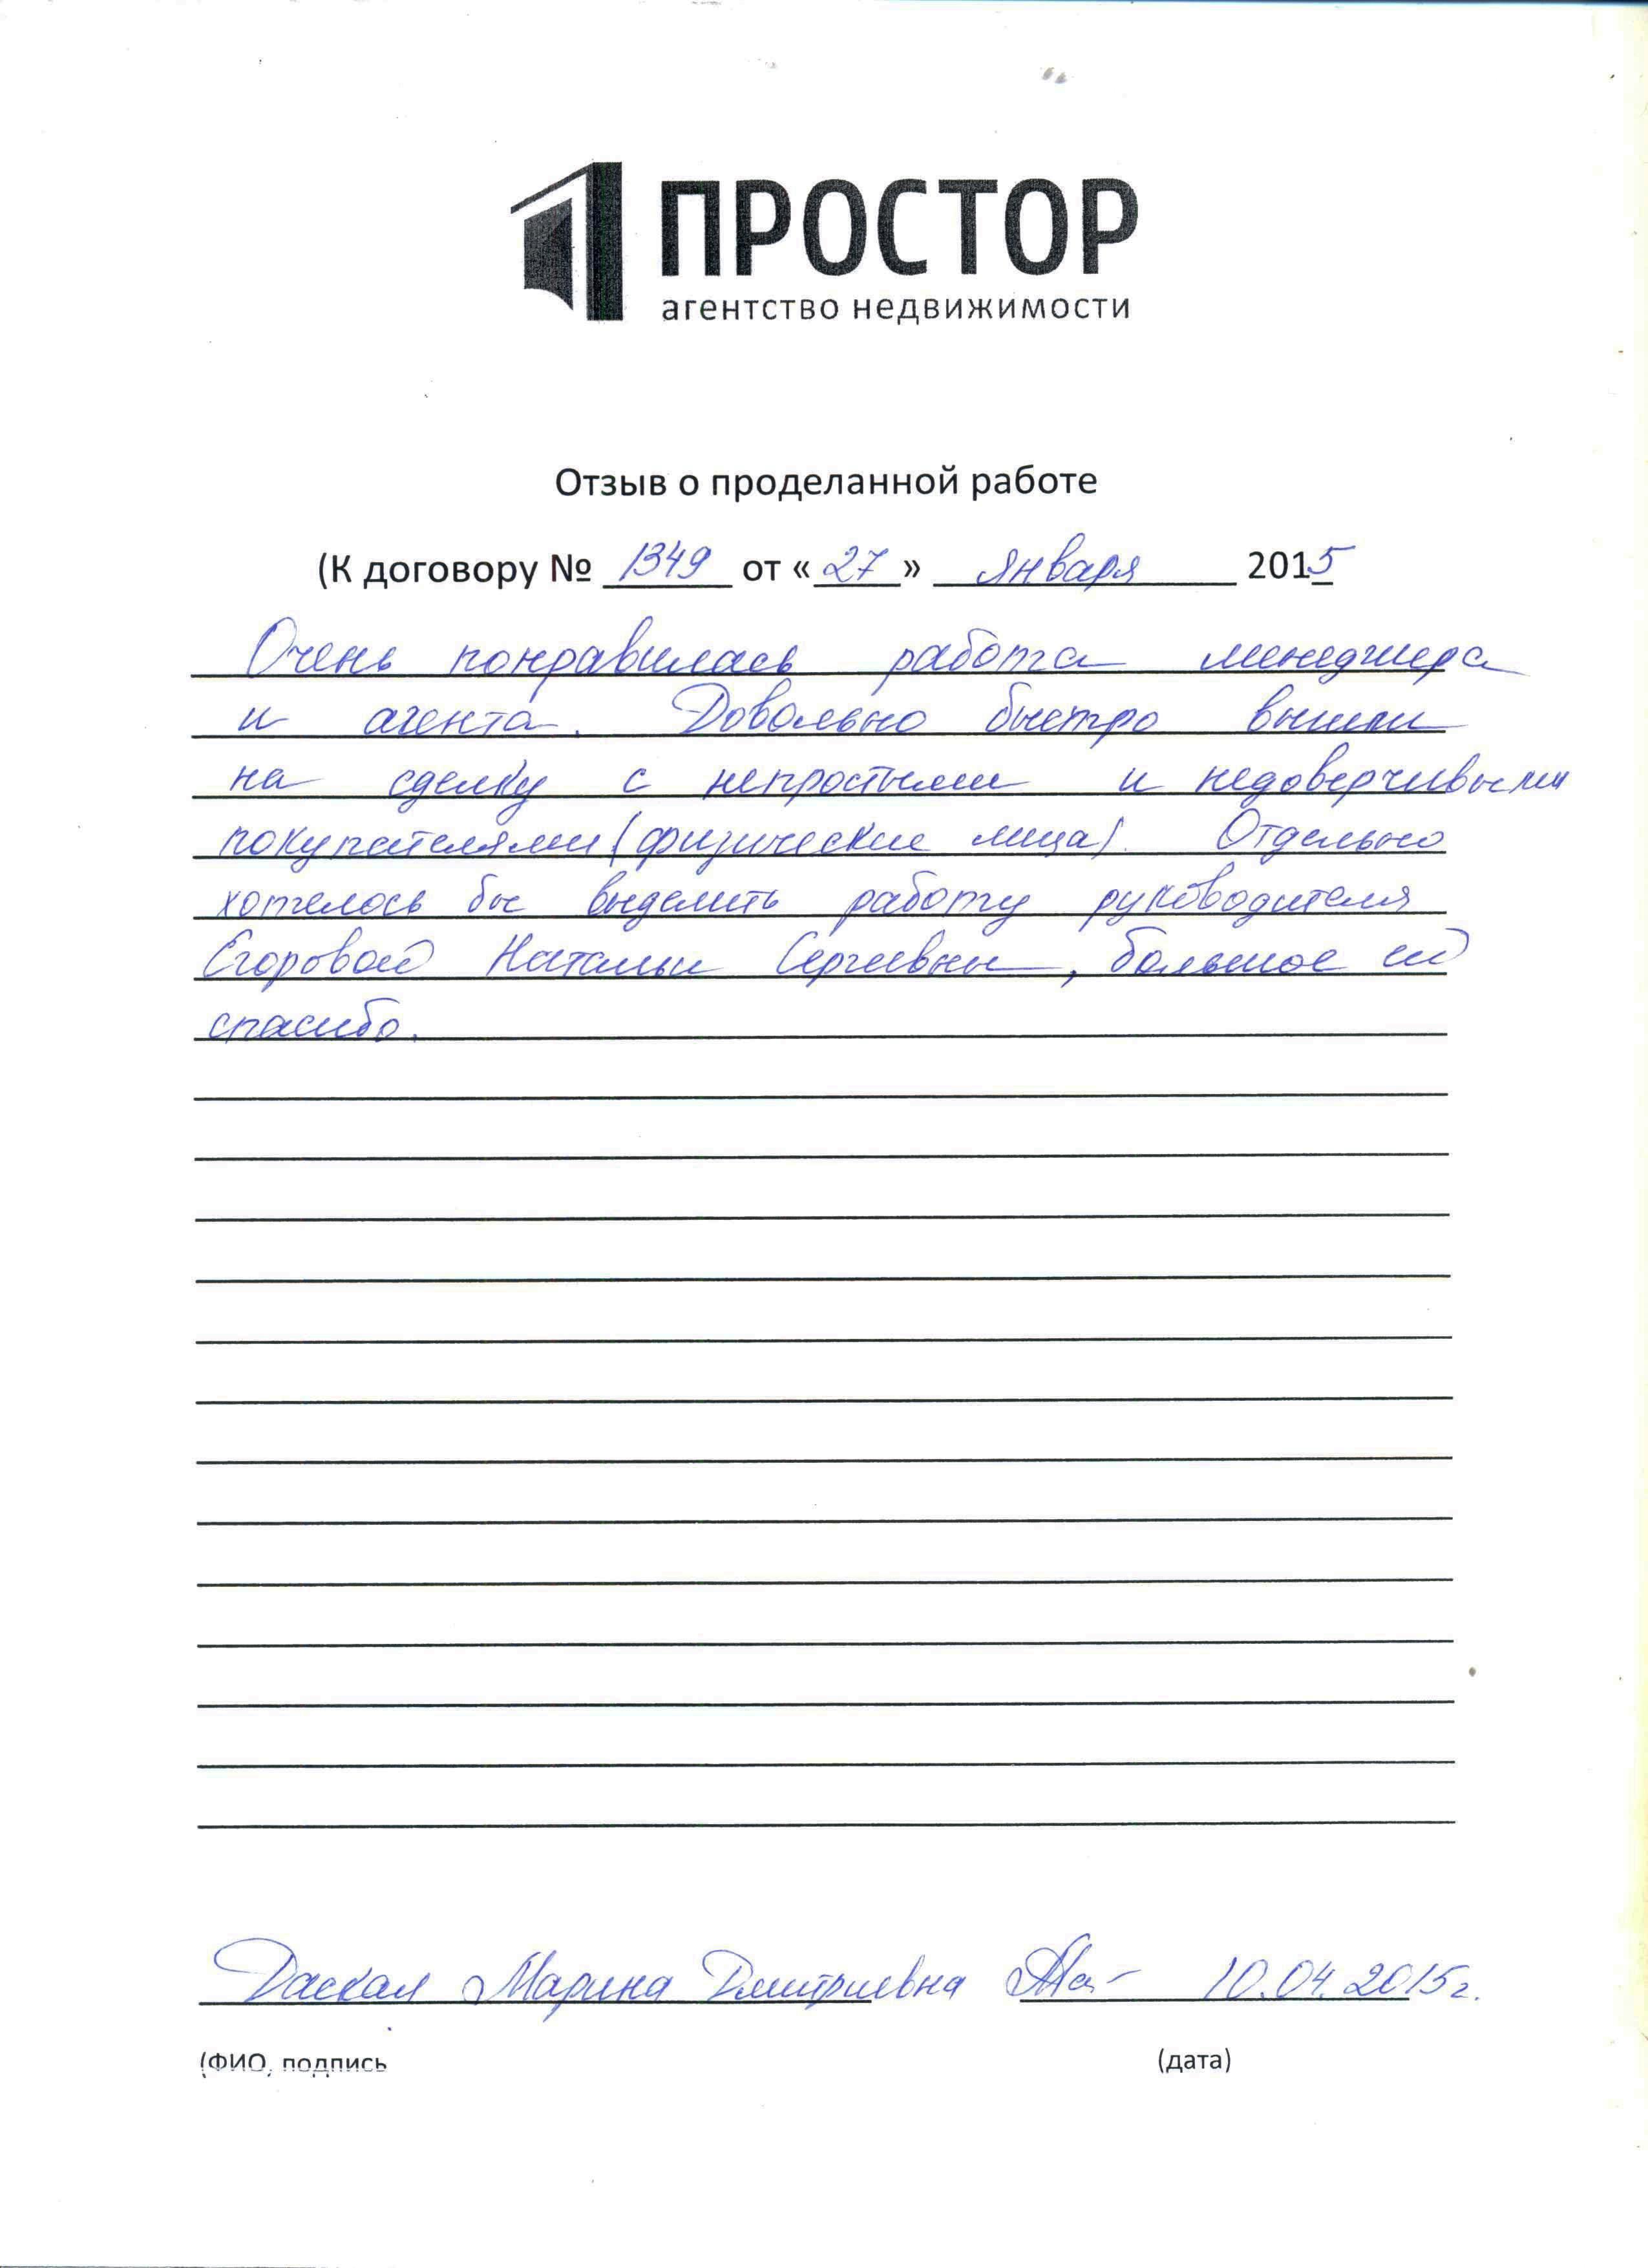 ПРОСТОР
агентство недвижимости
Отзыв о проделанной работе
(К договору № 1349 от «27» января 2015
Очень понравилась работа менеджера
и агента. Довольно быстро вышли
на сделку с непростыми и недоверчивыми
покупателями (физические лица). Отдельно
хотелось бы выделить работу руководителя
Егоровой Натальи Сергеевны, большое ей
спасибо.
Даскал Марина Дмитриевна 10.04.2015г.
(ФИО, подпись (дата)